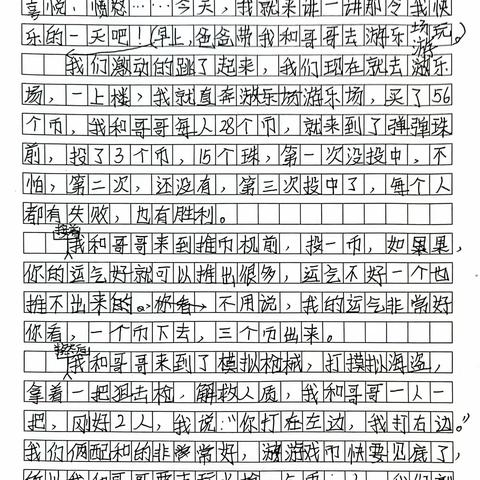 喜悦，愤怒……今天，我就来讲一讲那令我快
乐的一天吧！（早上，爸爸带我和哥哥去游乐场玩。）
我们激动的跳了起来，我们现在就去游乐
场，一上楼，我就直奔游乐场游乐场，买了56
个币，我和哥哥每人28个币，就来到了弹弹珠
前，投了3个币，15个珠，第一次没投中，不
怕，第二次，还没有，第三次投中了，每个人
都有失败，也有胜利。
接着
我和哥哥来到推币机前，投一币，如果果，
你的运气好就可以推出很多，运气不好一个也
推不出来的。你看 不用说，我的运气非常好
你看，一个币下去，三个币出来。
我和哥哥来到了模拟枪械，打摸拟海盗，
拿着一把狙击枪，解救人质，我和哥哥一人一
把，刚好2人，我说："你打在左边，我打右边。"
我们俩配和的非常好，游戏币快要见底了，